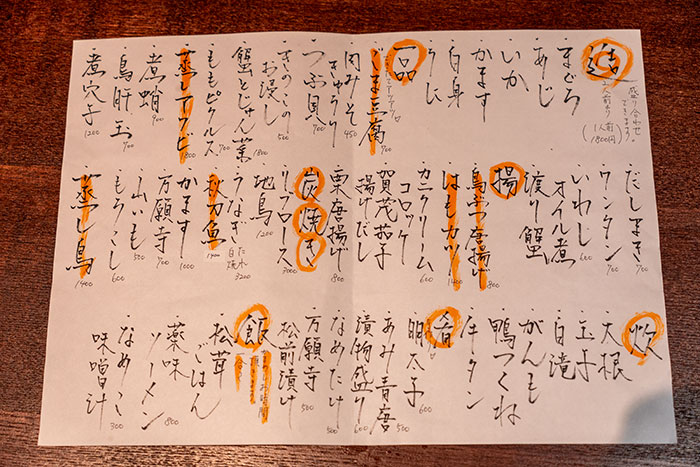 造
盛り合わせ
二人前より
できます。
(1人前
1800円)
・まぐろ
・あじ
・いか
・かます
・白身
・うに
一品
・ごま豆腐 700
・肉みそ
きゅうり 450
・つぶ貝 700
・きのこの
お浸し 500
・蟹とじゅん菜 1800
・ももピクルス 700
・蒸しアワビ
・煮蛸 900
・鳥肝
・玉
・煮穴子 1200
・だしまき 700
・ワンタン 700
・いわし
オイル煮 600
・渡り蟹
揚
・鳥ぶつ唐揚げ 800
・はもカツ 1400
・カニクリーム
コロッケ 600
・賀茂茄子
揚げだし
・栗唐揚げ 800
炭焼き
・リブロース 3000
・地鳥 1200
・うなぎ たれ
白焼 3200
・秋刀魚 1400
・かます 1000
・万願寺 700
・山いも 500
・もろこし 600
・蒸し鳥 1400
炊
・大根
・玉子
・白滝
・がんも
・鴨つくね
・牛タン
肴
・明太子 600
・あみ青唐 500
・漬物盛り 600
・なめたけ 500
・万願寺 500
・松前漬け 500
飯
・松茸
ごはん
・薬味
ソーメン 800
・なめこ
味噌汁 300